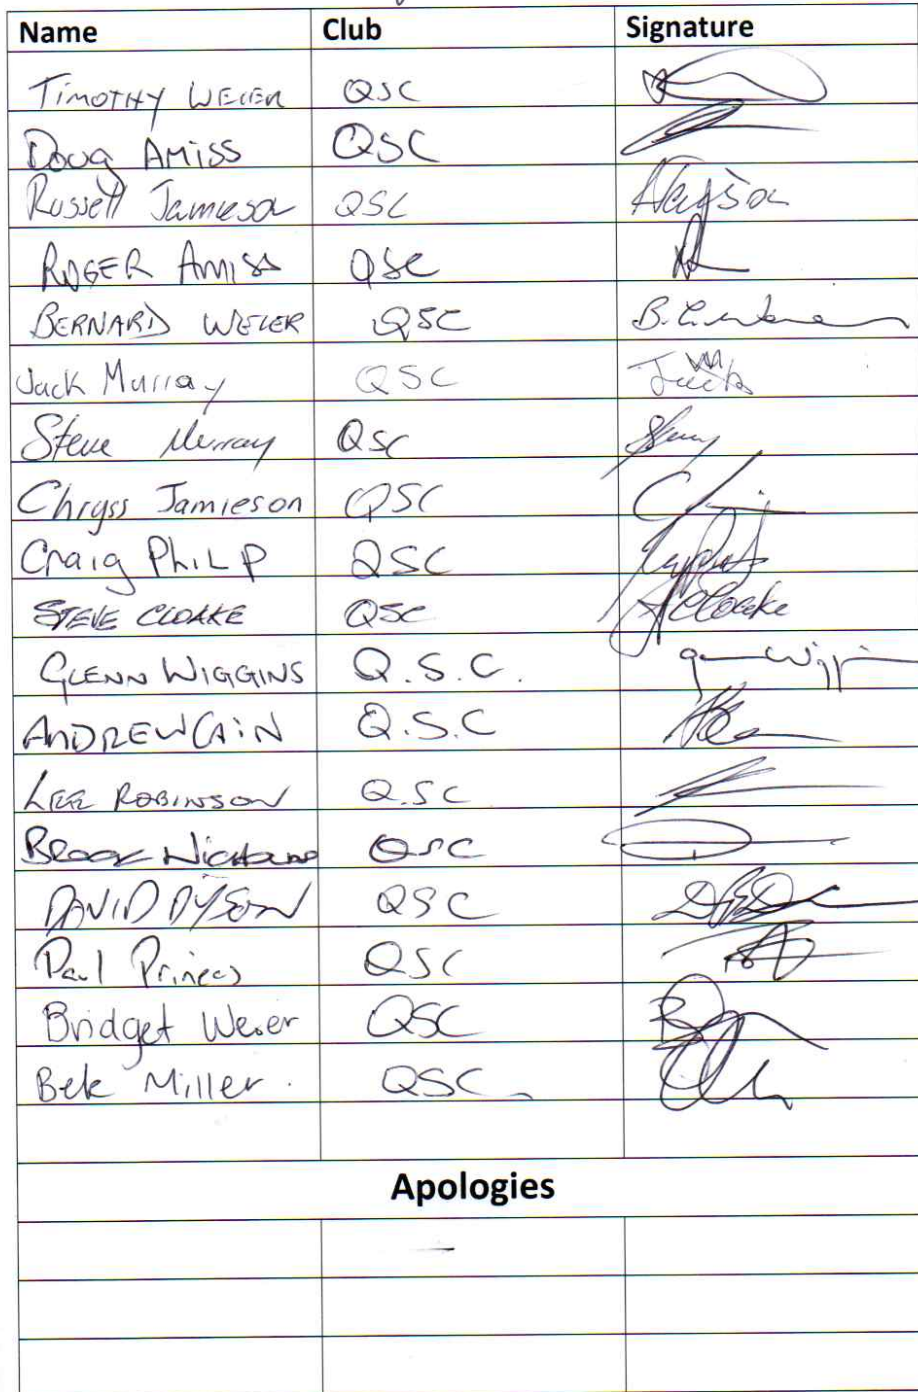 Name Club Signature
TIMOTHY WEIER QSC
Doug AMISS QSC
Russell Jamieson QSC
ROGER AMISS QSC
BERNARD WEIER QSC
Jack Murray QSC Jack
Steve Murray QSC
Chryss Jamieson QSC
Craig PhiLP QSC
STEVE CLOAKE QSC Cloake
GLENN WIGGINS Q.S.C.
ANDREW CAIN Q.S.C
LEE ROBINSON Q.SC
QSC
DAVID DYSON QSC
Paul Princes QSC
Bridget Weier QSC
Bek Miller. QSC
Apologies